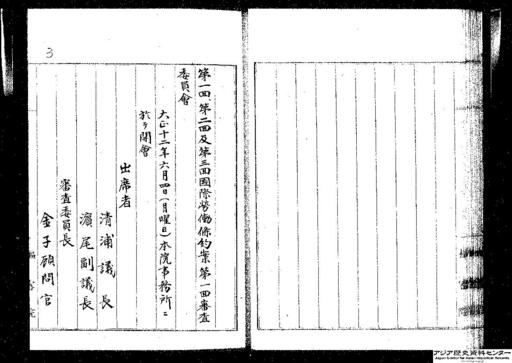 3
第一回、第二回及第三回國際勞働條約案第一回審査
委員會
大正十二年六月四日(月曜日)本院事務所ニ
於テ開會
出席者
清浦議長
濱尾副議長
審査委員長
金子顧問官
アジア歴史資料センター
Japan Center for Asian Historical Records